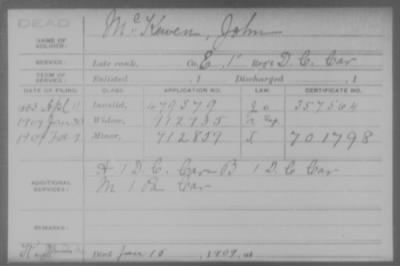 DEAD
NAME OF SOLDIER: McKeven, John
SERVICE: Late rank, Co. E, 1 Reg't D. C. Cav
TERM OF SERVICE: Enlisted , 1 Discharged , 1
DATE OF FILING. CLASS. APPLICATION NO. LAW. CERTIFICATE NO.
1883 Apl 11 Invalid, 479379 357564
1909 Jan Widow, 912735
1909 Feb Minor, 912859 701798
ADDITIONAL SERVICES: H 1 D. C. Cav B 1 D. C Cav
M 1 Cav
REMARKS:
Died Jan 15, 1909, at